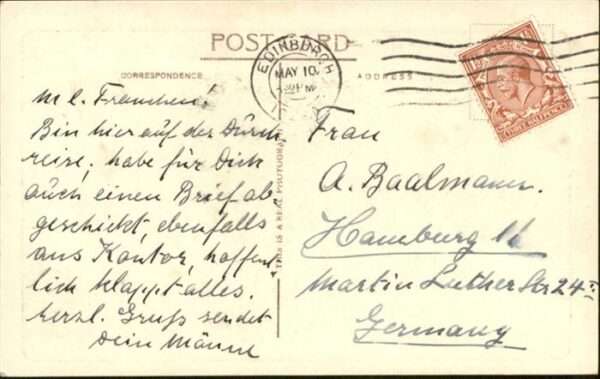 POST CARD
CORRESPONDENCE
ADDRESS
EDINBURGH
MAY 10
THREE HALFPENCE
THIS IS A REAL PHOTOGRAPH
M l. Frauchen!
Bin hier auf der Durch
reise, habe für Dich
auch einen Brief ab
geschickt, ebenfalls
aus Kontor, hoffent
lich klappt alles.
Herzl. Gruß sendet
Dein Männe
Frau
A. Baalmann.
Hamburg
Martin Luther Str 24
Germany